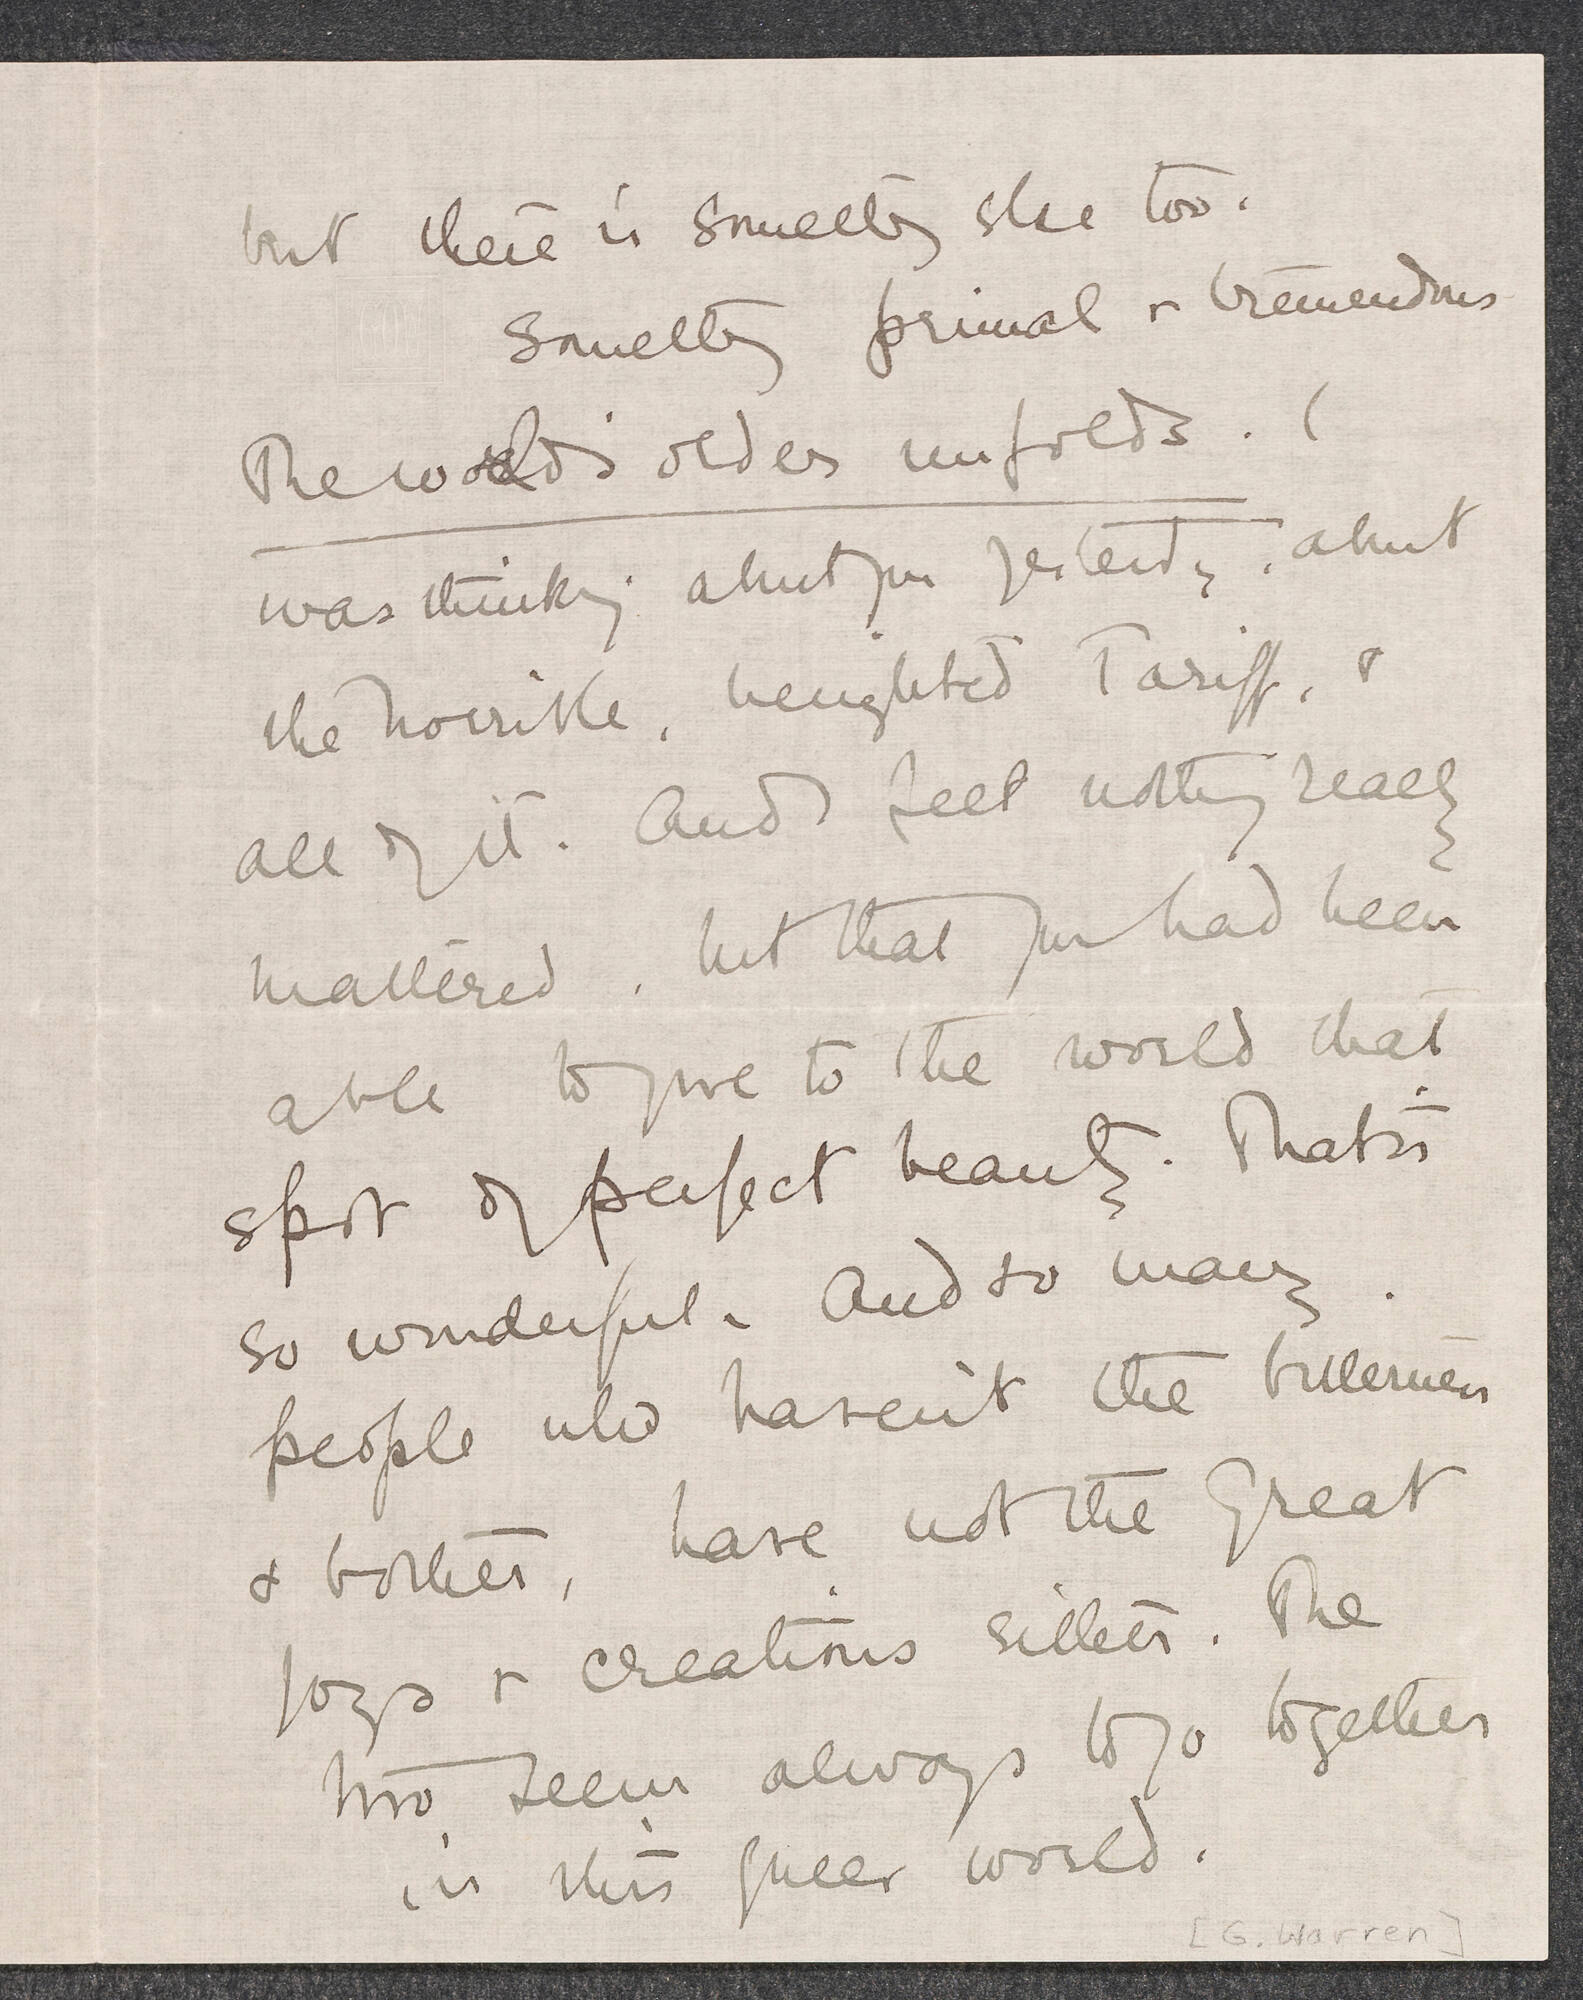 but there is something else too.
Something primal & tremendous
The world's older unfolds. I
was thinking about you yesterday, about
the horrible, benighted Tariff, &
all of it. And I feel nothing really
mattered, but that you had been
able to give to the world that
spot of perfect beauty. That is
so wonderful. And so many
people who haven't the bitterness
& bother, have not the great
joys & creations either. The
two seem always to go together
in this queer world.
[G. Warren]